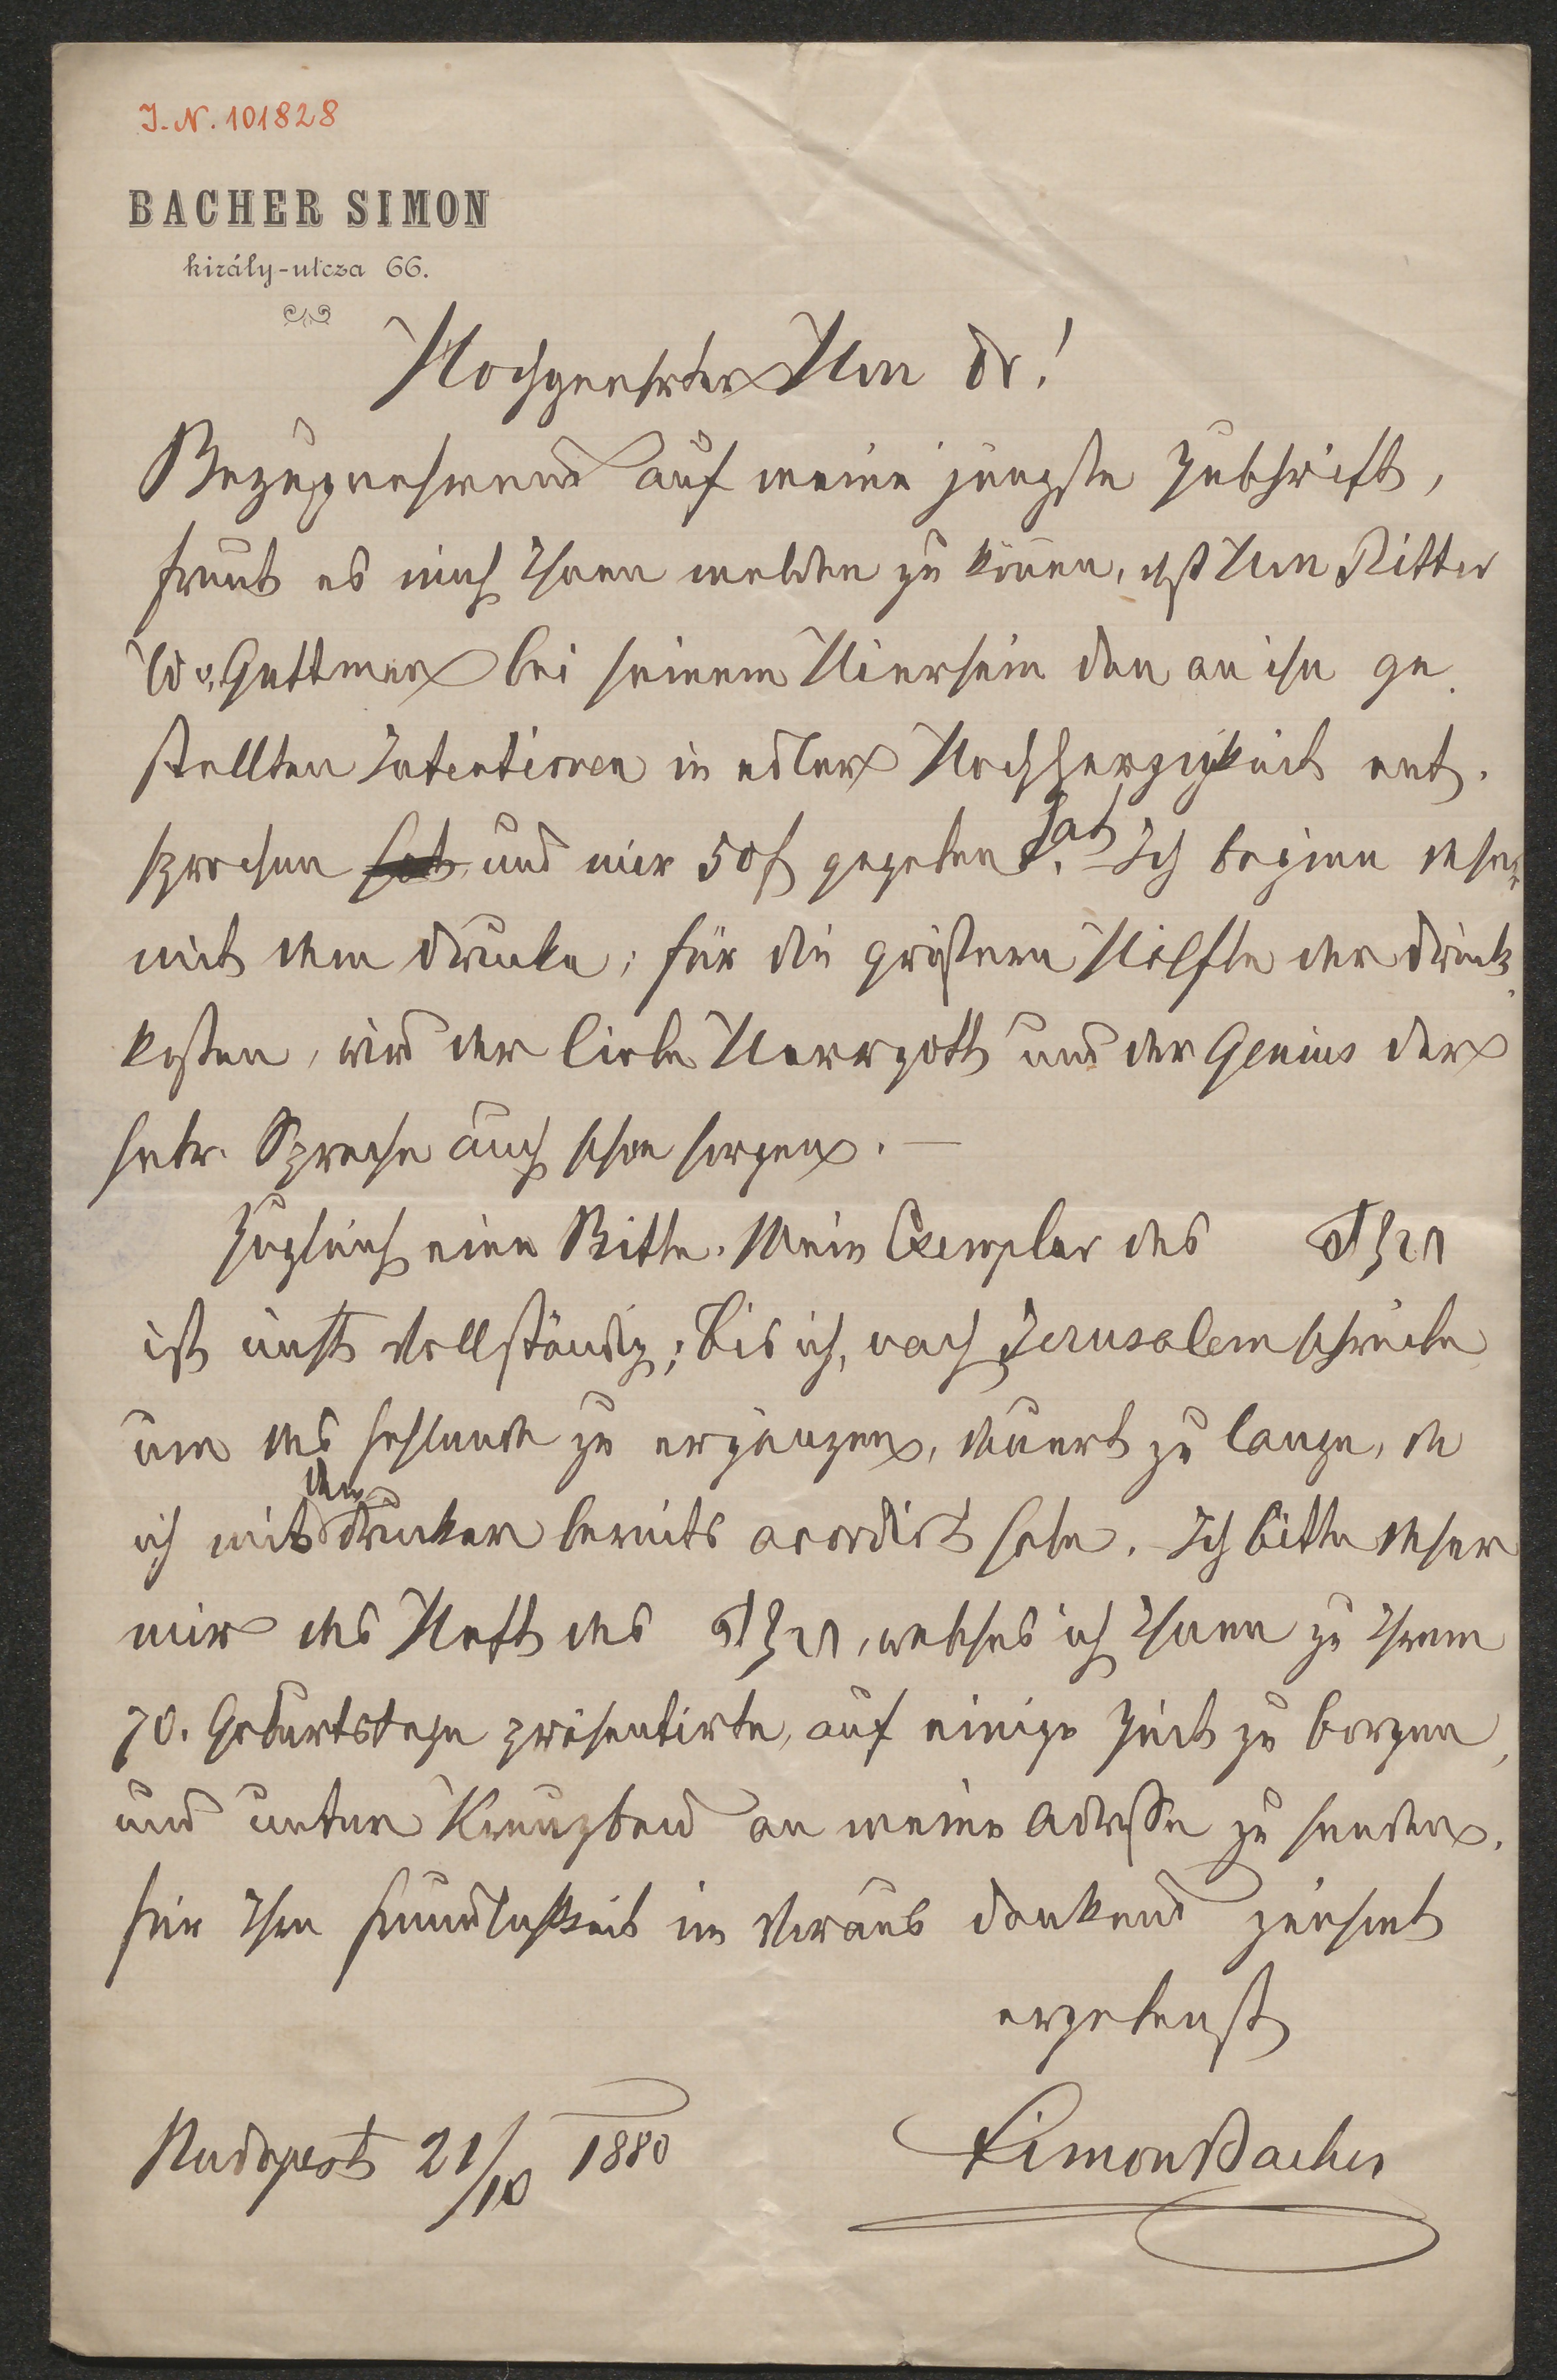 I. N. 101828
BACHER SIMON
király-utcza 66.
Hochgeehrter Herr Dr!
Bezugnehmend auf meine jüngste Zuschrift,
freut es mich Ihnen melden zu können, daß Herr Ritter
W. v. Guttman bei seinem Hiersein den an ihn ge
stellten Intentionen in edler Hochherzigkeit ent-
sprochen hat und mir 50 f gegeben hat. Ich beginne daher
mit dem Drucke; für die größere Hälfte der Druck
kosten, wird der liebe Herrgott und der Genius der
hebr. Sprache auch schon sorgen. —
Zugleich eine Bitte. Mein Exemplar des
ist nicht vollständig; bis ich, nach Jerusalem schreibe
um das fehlende zu ergänzen, dauert zu lange, da
ich mit dem Drucker bereits acordirt habe. Ich bitte daher
mir das Heft des , welches ich Ihnen zu Ihrem
70. Geburtstage präsentirte, auf einige Zeit zu borgen,
und unter Kreuzband an meine Adresse zu senden.
Für Ihre Freundlichkeit im Voraus dankend zeichnet
ergebenst
Budapest 21/10 1880
Simon Bacher